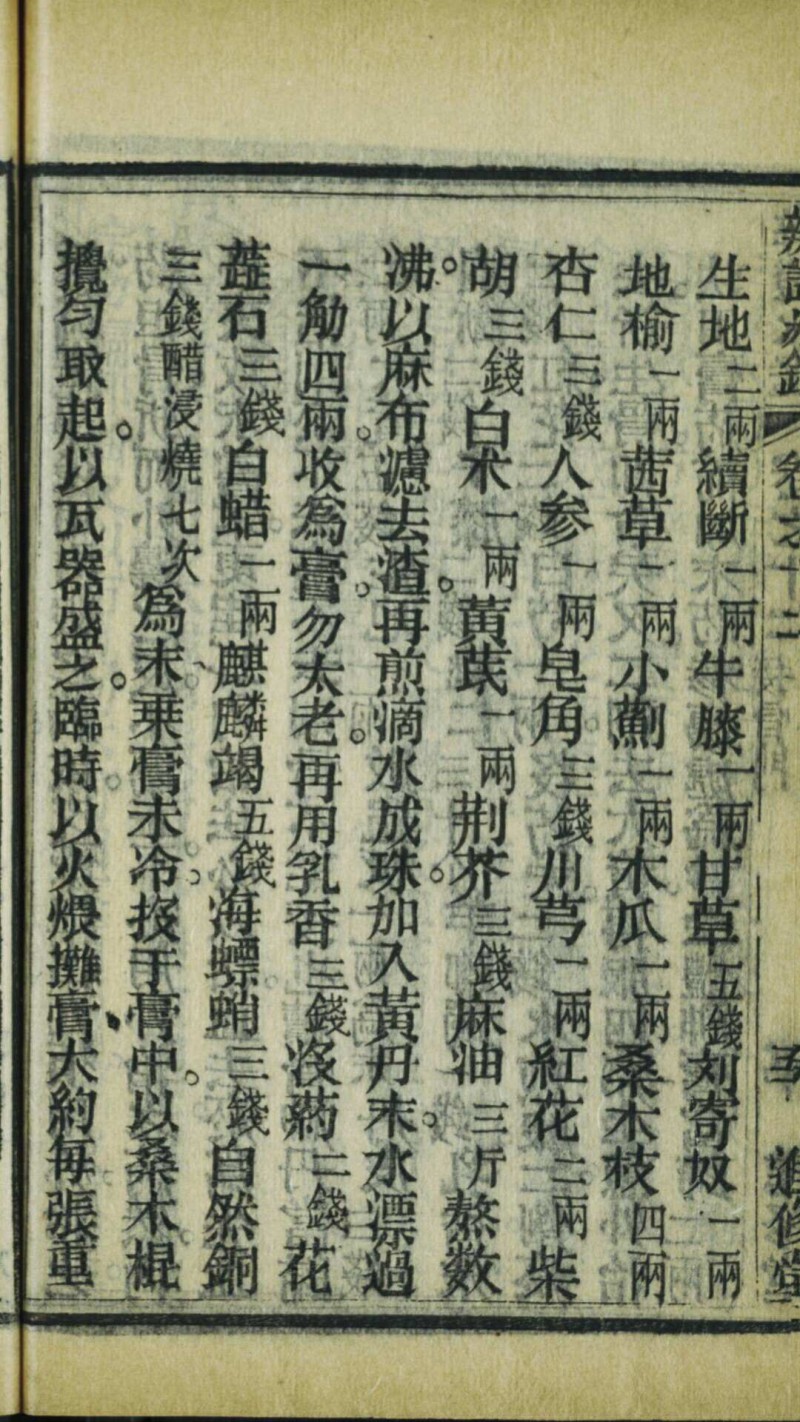 辨證冰鑑 卷之十二 五 進修堂
生地二兩續斷一兩牛膝一兩甘草五錢刘寄奴一兩
地榆一兩茜草一兩小薊一兩木瓜一兩桑木枝四兩
杏仁三錢人参一兩皂角三錢川芎一兩紅花二兩柴
胡三錢白术一兩黄茋一兩荆芥三錢麻油三斤熬数
沸。以麻布濾去渣。再煎滴水成珠。加入黄丹末。水漂過
一觔四兩。收為膏。勿太老。再用乳香三錢沒药二錢花
蕋石三錢白蜡一兩麒麟竭五錢海螵蛸三錢自然銅
三錢醋浸燒七次為末、乗膏未冷。投于膏中。以桑木棍
攪匀取起。以瓦器盛之。臨時以火煨攤膏、大約每張重